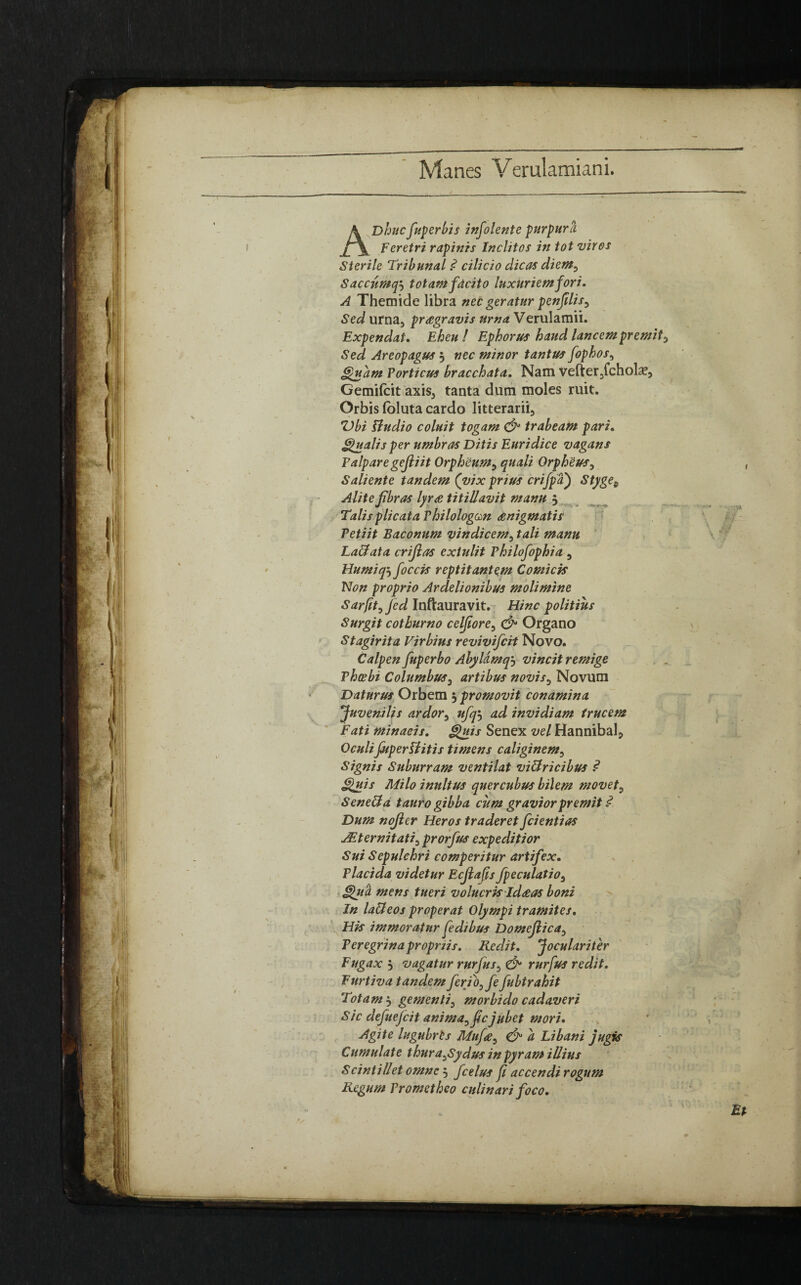 Manes Verulamiani.
ADhuc ſuperbis inſolente purpurâ
Feretri rapinis Inclitos in tot viros
Sterile Tribunal? cilicio dicas diem,
Saccúmq; totam fácito luxuriem fori.
A Themide libra nec geratur penſilis,
Sed urna, prægravis urna Verulamii.
Expendat. Eheu! Ephorus haud lancem premit,
Sed Areopagus; nec minor tantus ſophos,
Quàm Porticus bracchata. Nam veſter, ſcholæ,
Gemiſcit axis, tanta dum moles ruit.
Orbis ſoluta cardo litterarii,
Vbi ſtudio coluit togam & trabeam pari.
Qualis per umbras Ditis Euridice vagans
Palpare geſtiit Orpheum, quali Orphëus,
Saliente tandem (vix prius criſpâ) Styge,
Alite fibras lyræ titillavit manu;
Talis plicata Philologωn ænigmatis
Petiit Baconum vindicem, tali manu
Lactata criſtas extulit Philoſophia,
Humiq; ſoccis reptitantem Comicis
Non proprio Ardelionibus molimine
Sarſit, ſed Inſtauravit. Hinc politiùs
Surgit cothurno celſiore, & Organo
Stagirita Virbius reviviſcit Novo.
Calpen ſuperbo Abylámq; vincit remige
Phœbi Columbus, artibus novis, Novum
Daturus Orbem; promovit conamina
Juvenilis ardor, uſq; ad invidiam trucem
Fati minacis. Quis Senex vel Hannibal,
Oculi ſuperſtitis timens caliginem,
Signis Suburram ventilat victricibus?
Quis Milo inultus quercubus bilem movet,
Senecta tauro gibba cùm gravior premit?
Dum noſter Heros traderet ſcientias
Æternitati, prorſus expeditior
Sui Sepulchri comperitur artifex.
Placida videtur Ecſtaſis ſpeculatio,
Quâ mens tueri volucris Idæas boni
In lacteos properat Olympi tramites.
His immoratur ſedibus Domeſtica,
Peregrina propriis. Redit. Joculariter
Fugax; vagatur rurſus, & rurſus redit.
Furtiva tandem ſeriò, ſe ſubtrahit
Totam; gementi, morbido cadaveri
Sic deſueſcit anima, ſic jubet mori.
Agite lugubrès Muſæ, & à Libani jugis
Cumulate thura, Sydus in pyram illius
Scintillet omne; ſcelus ſi accendi rogum
Regum Prometheo culinari foco.
Et